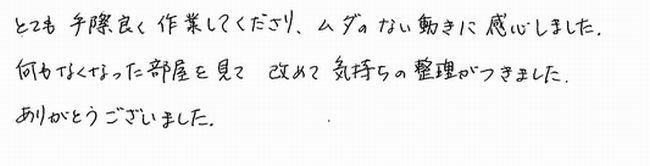 とても 手際良く 作業してくださり、ムダの ない 動きに 感心しました.
何もなくなった部屋を見て 改めて 気持ちの 整理がつきました.
ありがとうございました.